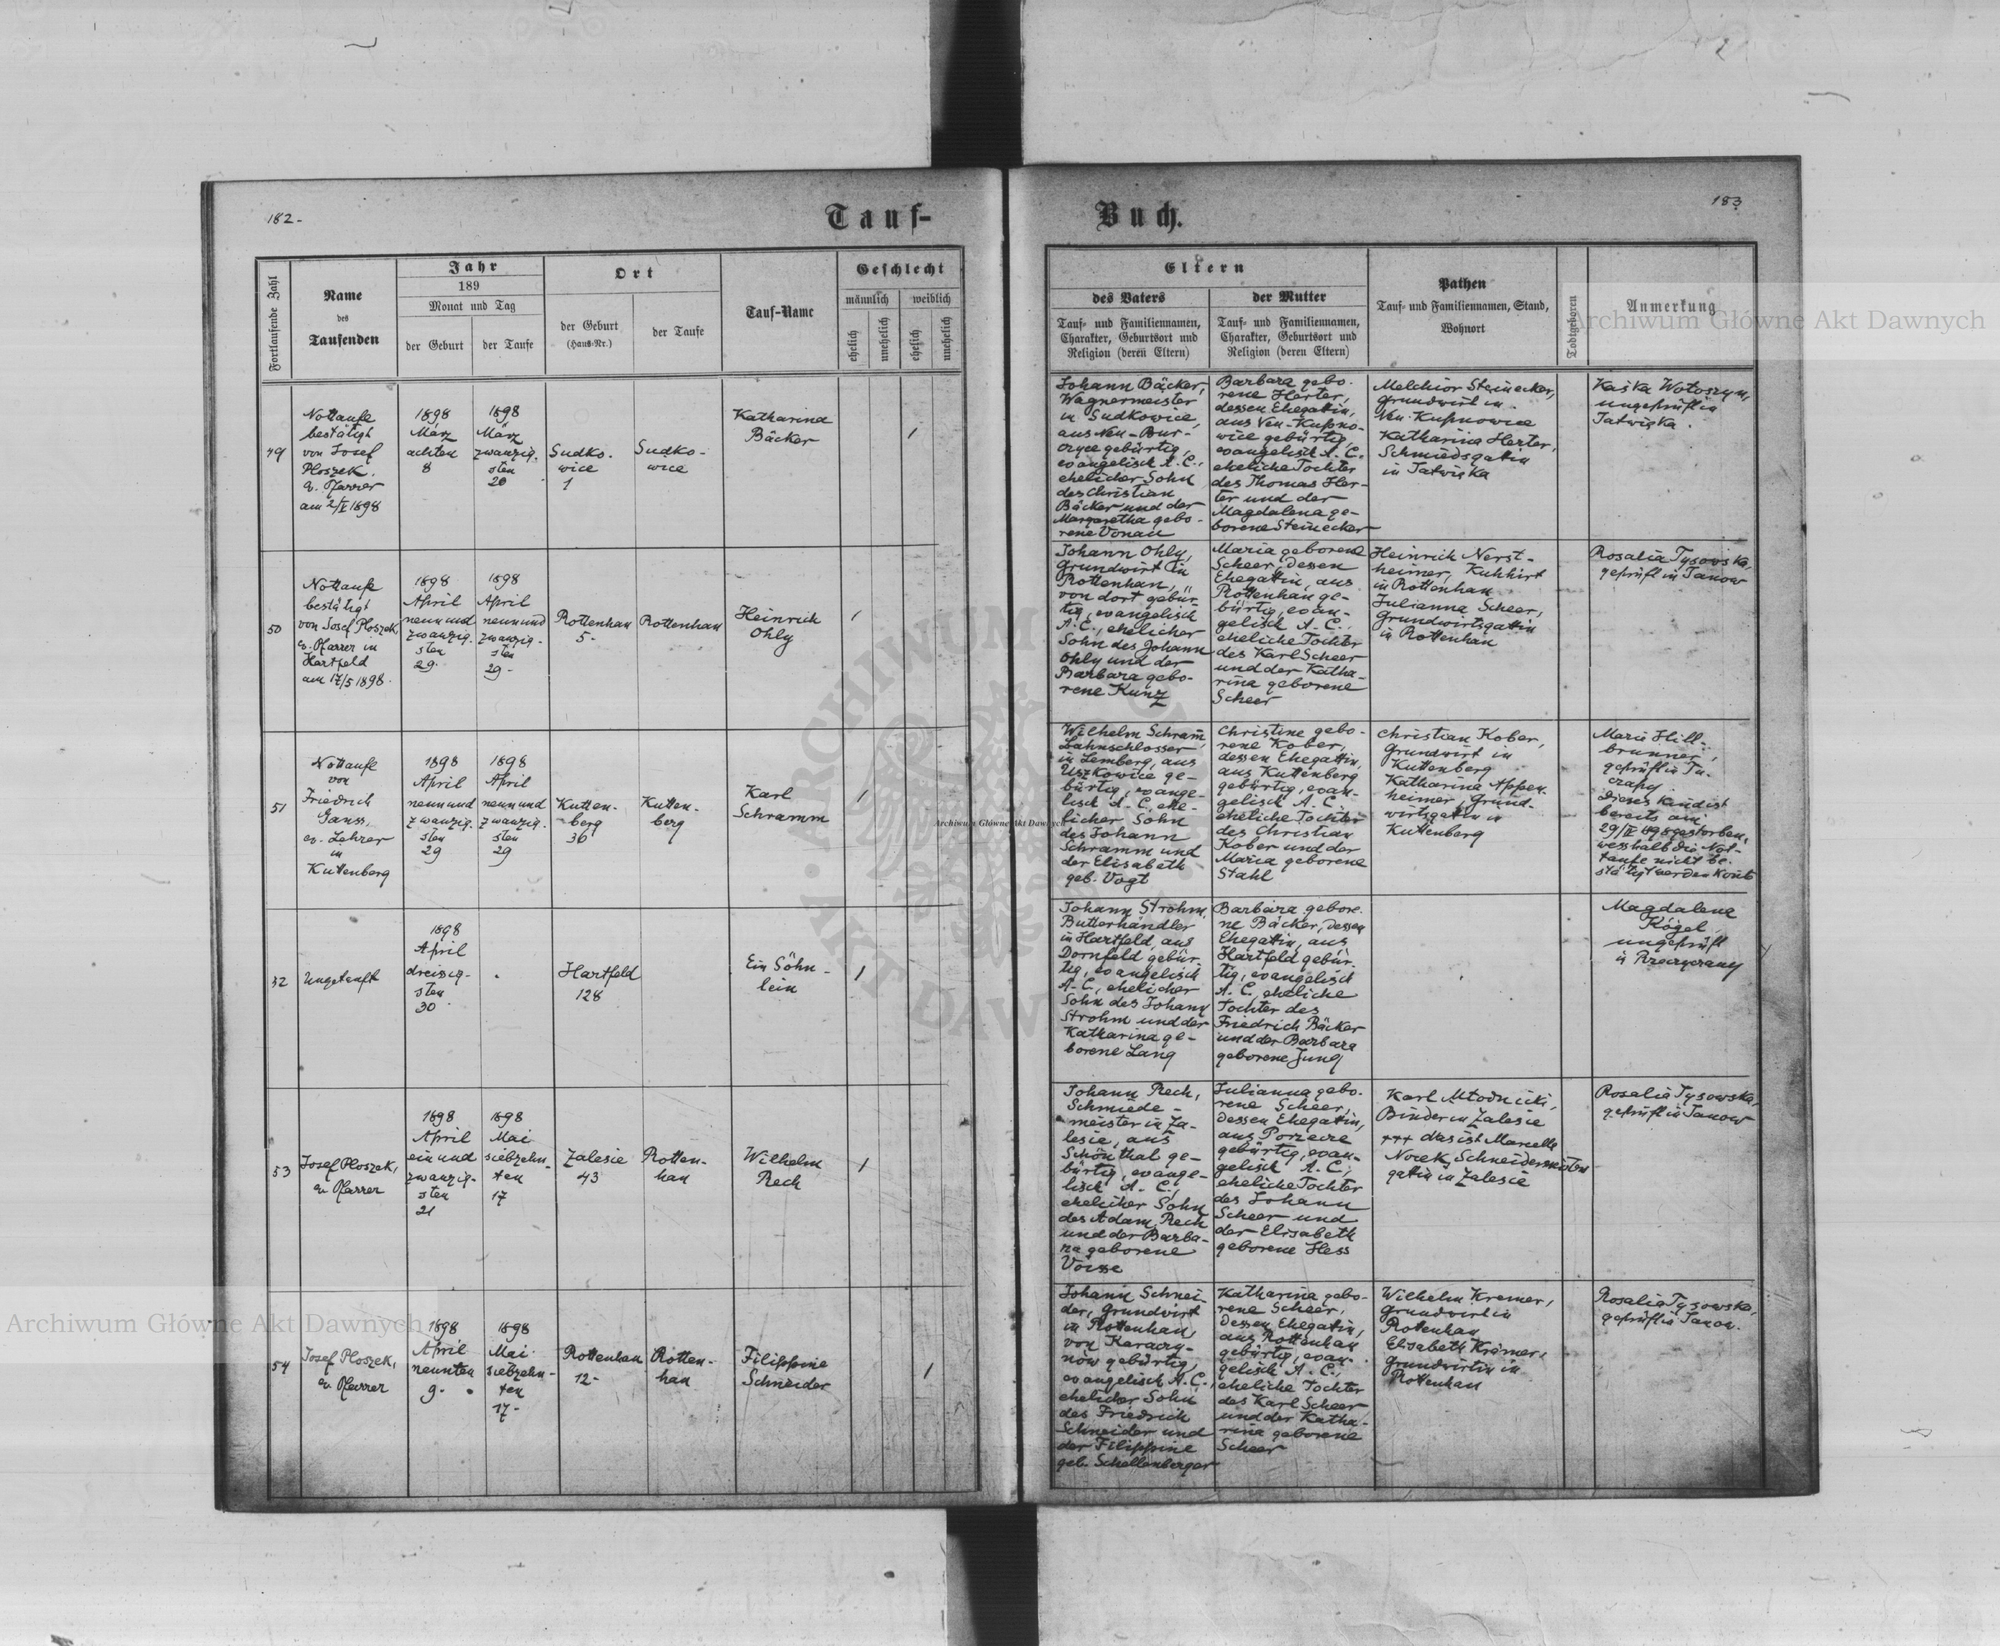 182-
Tauf-
Buch.
183
Fortlaufende Zahl
Name
des
Taufenden
Jahr
189
Monat und Tag
der Geburt
der Taufe
Ort
der Geburt
(Haus-Nr.)
der Taufe
Tauf-Name
Geschlecht
männlich
weiblich
ehelich
unehelich
ehelich
unehelich
Eltern
des Vaters
Tauf- und Familiennamen,
Charakter, Geburtsort und
Religion (deren Eltern)
der Mutter
Tauf- und Familiennamen,
Charakter, Geburtsort und
Religion (deren Eltern)
Pathen
Tauf- und Familiennamen, Stand,
Wohnort
Todtgeboren
Anmerkung
49
Nottaufe
bestätigt
von Josef
Ploszek.
ev. Pfarrer
am 2/V 1898
1898
März
achten
8
1898
März
zwanzig-
sten
20
Sudko-
wice
1
Sudko-
wice
Katharina
Bäcker
1
Johann Bäcker,
Wagnermeister
in Sudkowice,
aus Neu-Bur-
gebürtig,
evangelisch A. C.,
ehelicher Sohn
des Christian
Bäcker und der
Margaretha gebo-
rene Vonau
Barbara gebo-
rene Herter,
dessen Ehegattin,
aus Neu-Kupno-
wice gebürtig,
evangelisch A. C.
eheliche Tochter
des Thomas Her-
ter und der
Magdalena ge-
borene Steinecker
Melchior Steinecker,
Grundwirt in
Neu-Kupnowice
Katharina Herter,
Schmiedsgattin
in Tatwiska
Kaśka Wołoszyn,
ungeprüft in
Tatwiska.
50
Nottaufe
bestätigt
von Josef Ploszek,
ev. Pfarrer in
Hartfeld
am 17/5 1898.
1898
April
neunund
zwanzig-
sten
29.
1898
April
neunund
zwanzig-
sten
29-
Rottenhan
5-
Rottenhan
Heinrich
Ohly
1
Johann Ohly,
Grundwirt in
Rottenhan,
von dort gebür-
tig, evangelisch
A. C., ehelicher
Sohn des Johann
Ohly und der
Barbara gebo-
rene Kunz
Maria geborene
Scheer, dessen
Ehegattin, aus
Rottenhan ge-
bürtig, evan-
gelisch A. C.,
eheliche Tochter
des Karl Scheer
und der Katha-
rina geborene
Scheer
Heinrich Nerst-
heimer, Kuhhirt
in Rottenhan
Julianna Scheer,
Grundwirtsgattin
in Rottenhan
Rosalia Tysowska,
geprüft in Janow
51
Nottaufe
von
Friedrich
Ganss,
ev. Lehrer
in
Kuttenberg
1898
April
neunund
zwanzig-
sten
29
1898
April
neunund
zwanzig-
sten
29
Kutten-
berg
36
Kutten-
berg
Karl
Schramm
1
Wilhelm Schram̄,
Bahnschlosser
in Lemberg, aus
Uszkowice ge-
bürtig, evange-
lisch A. C., ehe-
licher Sohn
des Johann
Schramm und
der Elisabeth
geb. Vogt
Christine gebo-
rene Kober,
dessen Ehegattin,
aus Kuttenberg
gebürtig, evan-
gelisch A. C.,
eheliche Tochter
des Christian
Kober und der
Maria geborene
Stahl
Christian Kober,
Grundwirt in
Kuttenberg
Katharina Appen-
heimer, Grund-
wirtsgattin in
Kuttenberg
Marie Hill-
brunner,
geprüft in Tu-
czapy.
Dieses Kind ist
bereits am
29/IV 898 gestorben,
wesshalb die Not-
taufe nicht be-
stätigt werden kon̄te
52
Ungetauft
1898
April
dreisig-
sten
30.
Hartfeld
128
Ein Söhn-
lein
1
Johann Strohm,
Butterhändler
in Hartfeld, aus
Dornfeld gebür-
tig, evangelisch
A. C., ehelicher
Sohn des Johann
Strohm und der
Katharina ge-
borene Lang
Barbara gebore-
ne Bäcker, dessen
Ehegattin, aus
Hartfeld gebür-
tig, evangelisch
A. C., eheliche
Tochter des
Friedrich Bäcker
und der Barbara
geborene Jung
Magdalena
Kögel,
ungeprüft
in
53
Josef Ploszek,
ev. Pfarrer
1898
April
ein und
zwanzig-
sten
21
1898
Mai
siebzehn-
ten
17
Zalesie
43
Rotten-
han
Wilhelm
Rech
1
Johann Rech,
Schmiede-
meister in Za-
lesie, aus
Schönthal ge-
bürtig, evange-
lisch A. C.,
ehelicher Sohn
des Adam Rech
und der Barba-
ra geborene
Julianna gebo-
rene Scheer,
dessen Ehegattin,
aus Porzecze
gebürtig, evan-
gelisch A. C.,
eheliche Tochter
des Johann
Scheer und
der Elisabeth
geborene Hess
Karl Młodnicki,
Binder in Zalesie
+++ das ist Marcella
Norek, Schneidermeisters
gattin in Zalesie
Rosalia Tysowska,
geprüft in Janow
54
Josef Ploszek,
ev. Pfarrer
1898
April
neunten
9-
1898
Mai
siebzehn-
ten
17-
Rottenhan
12-
Rotten-
han
Filippine
Schneider
1
Johann Schnei-
der, Grundwirt
in Rottenhan,
von Karaczy-
now gebürtig,
evangelisch A. C.,
ehelicher Sohn
des Friedrich
Schneider und
der Filippine
geb. Schellenberger
Katharina gebo-
rene Scheer,
dessen Ehegattin,
aus Rottenhan
gebürtig, evan-
gelisch A. C.,
eheliche Tochter
des Karl Scheer
und der Katha-
rina geborene
Scheer
Wilhelm Kremer,
Grundwirt in
Rotenhan
Elisabeth Krämer,
Grundwirtin in
Rottenhan
Rosalia Tysowska,
geprüft in Janow.
Archiwum Główne Akt Dawnych
Archiwum Główne Akt Dawnych
Archiwum Główne Akt Dawnych